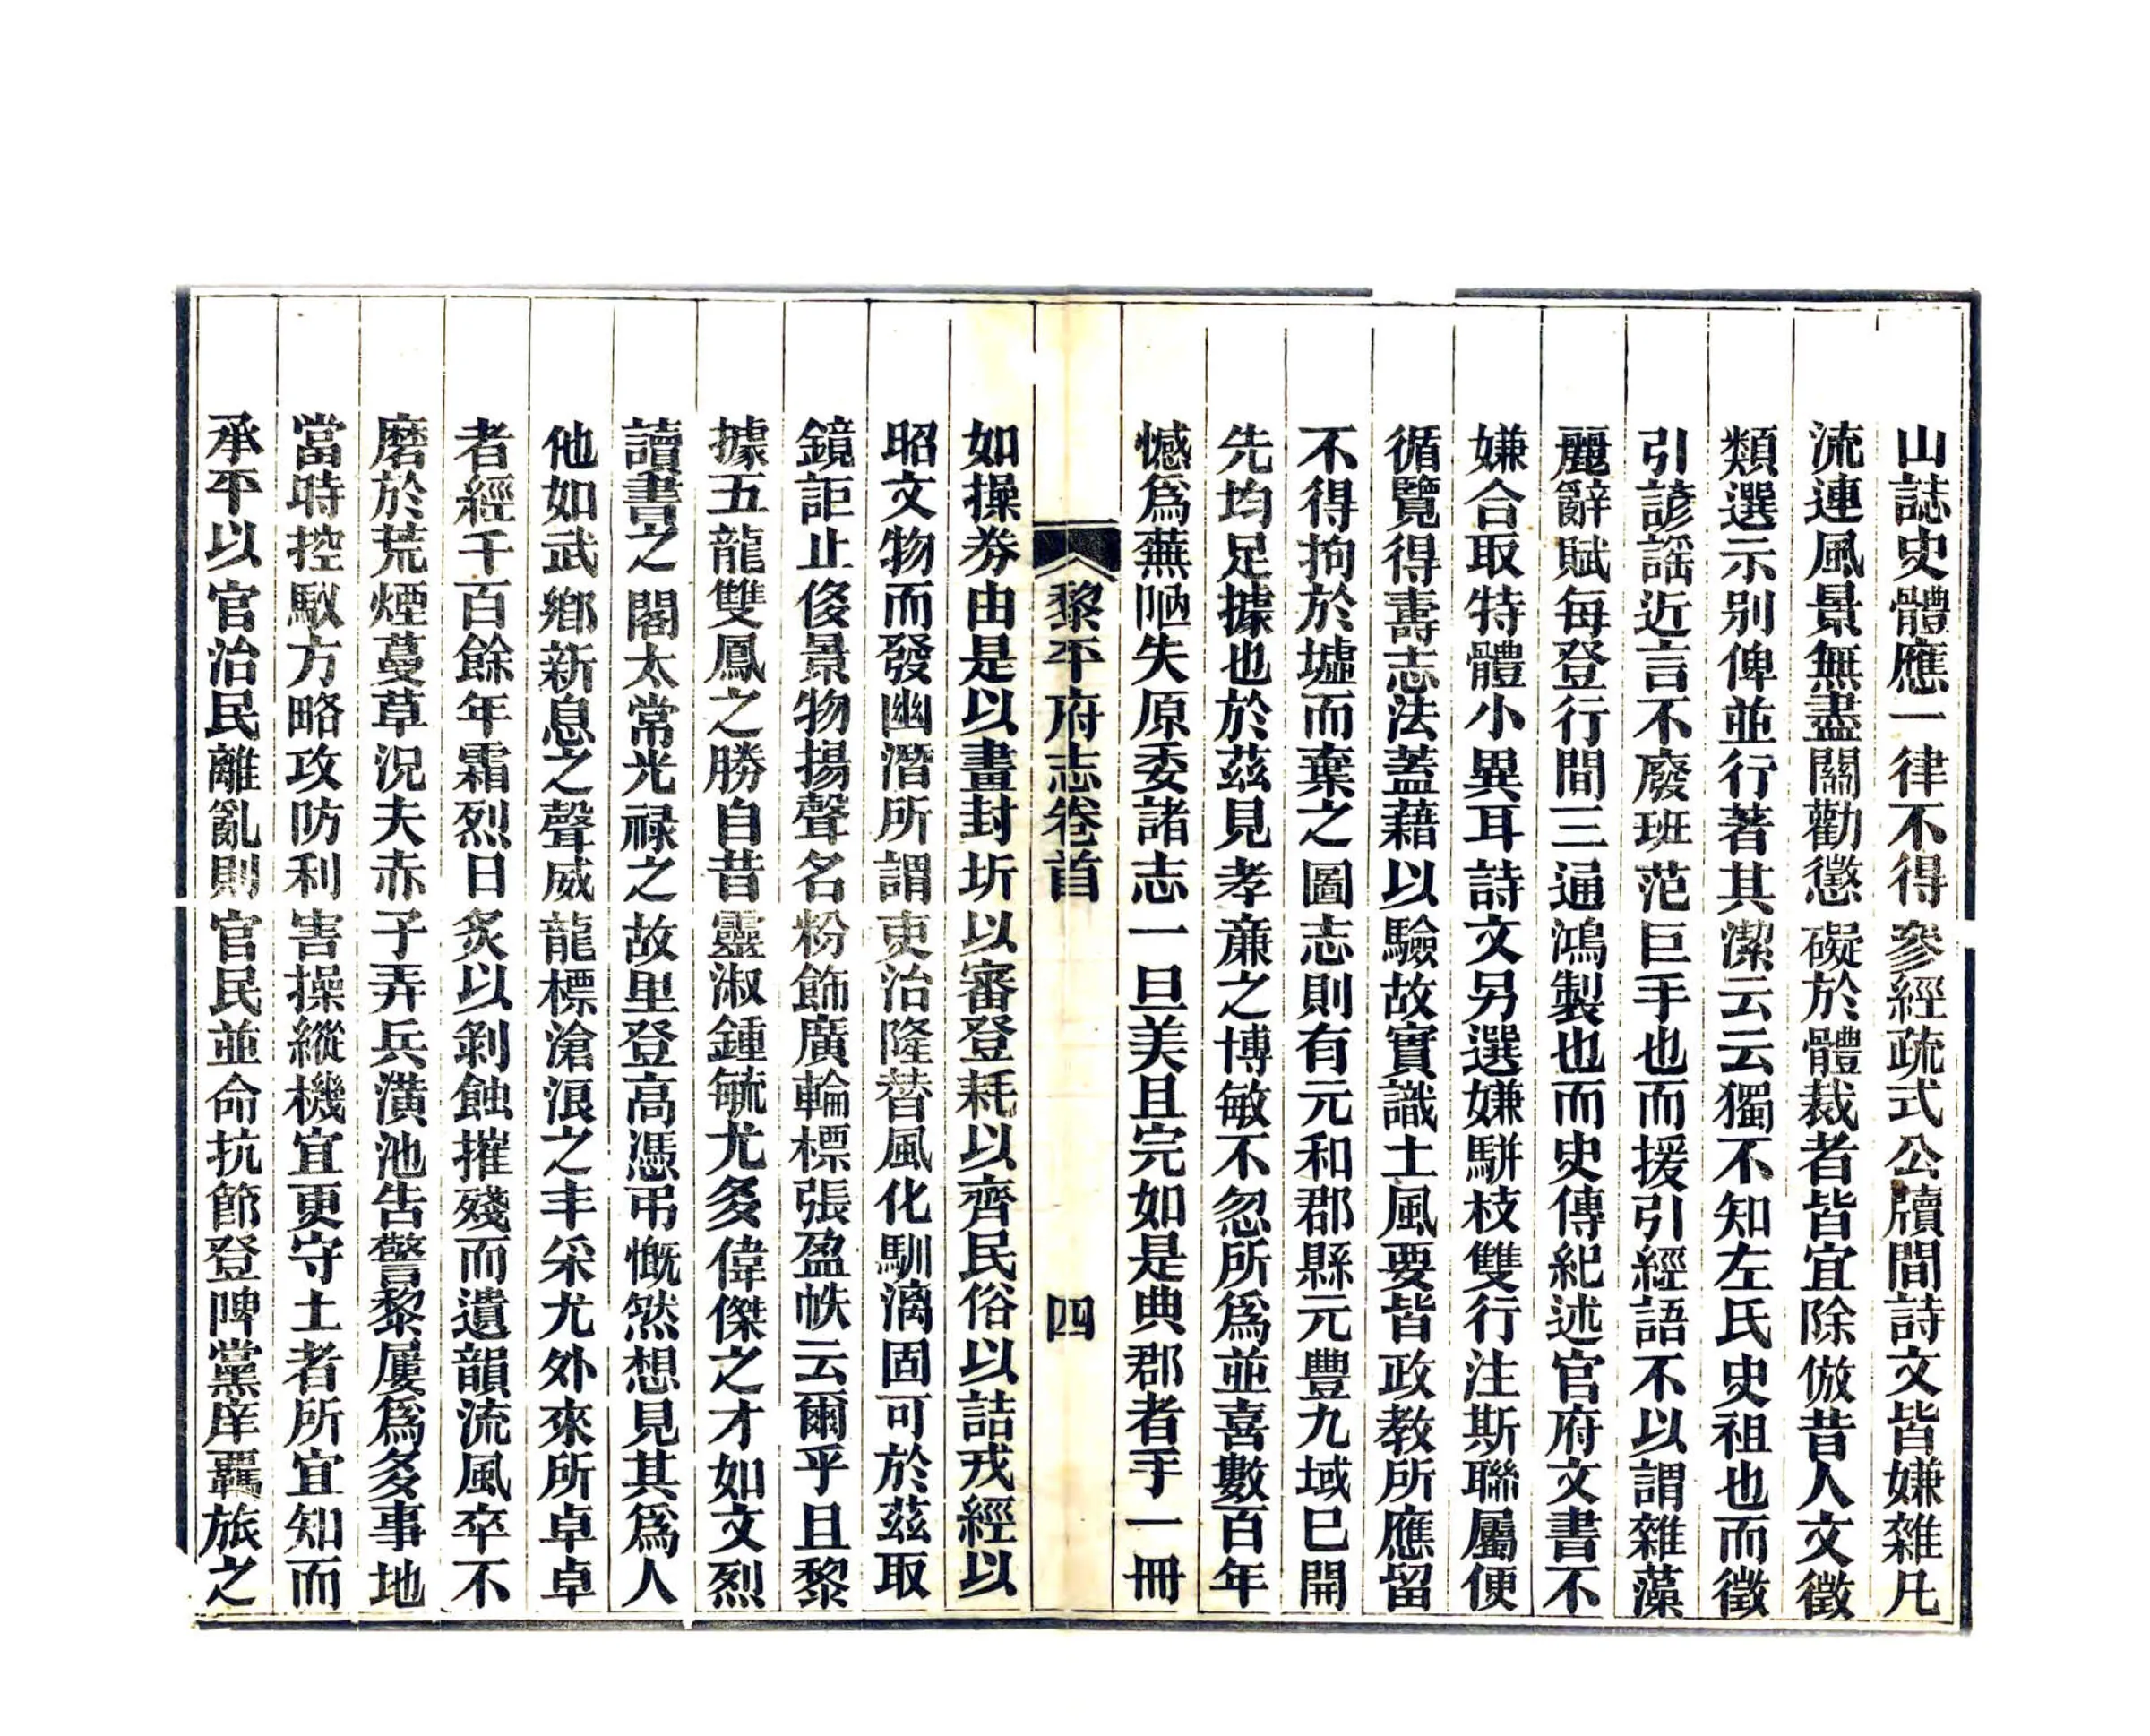 山誌史體應一律不得參經疏式公牘間詩文皆嫌雜凡
流連風景無盡關勸懲礙於體裁者皆宜除倣昔人文徵
類選示别俾並行著其潔云云獨不知左氏史祖也而徵
引諺謡近言不廢班范巨手也而援引經語不以謂雜藻
麗辭賦每登行間三通鴻製也而史傳紀述官府文書不
嫌合取特體小異耳詩文另選嫌駢枝雙行注斯聯屬便
循覽得壽志法蓋藉以驗故實識土風要皆政教所應留
不得拘於墟而棄之圖志則有元和郡縣元豐九域已開
先均足據也於茲見孝亷之博敏不忽所爲並喜數百年
憾爲蕪陋失原委諸志一旦美且完如是典郡者手一冊
黎平府志卷首 四
如操券由是以畫封圻以審登耗以齊民俗以詰戎經以
昭文物而發幽潛所謂吏治隆替風化馴漓固可於茲取
鏡詎止侈景物揚聲名粉飾廣輪標張盈帙云爾乎且黎
據五龍雙鳳之勝自昔靈淑鍾毓尤多偉傑之才如文烈
讀書之閣太常光禄之故里登高憑弔慨然想見其爲人
他如武鄉新息之聲威龍標滄浪之丰采尤外來所卓卓
者經千百餘年霜烈日炙以剝蝕摧殘而遺韻流風卒不
磨於荒煙蔓草況夫赤子弄兵潢池告警黎屢爲多事地
當時控馭方略攻防利害操縱機宜更守土者所宜知而
承平以官治民離亂則官民並命抗節登陴黨庠羈旅之